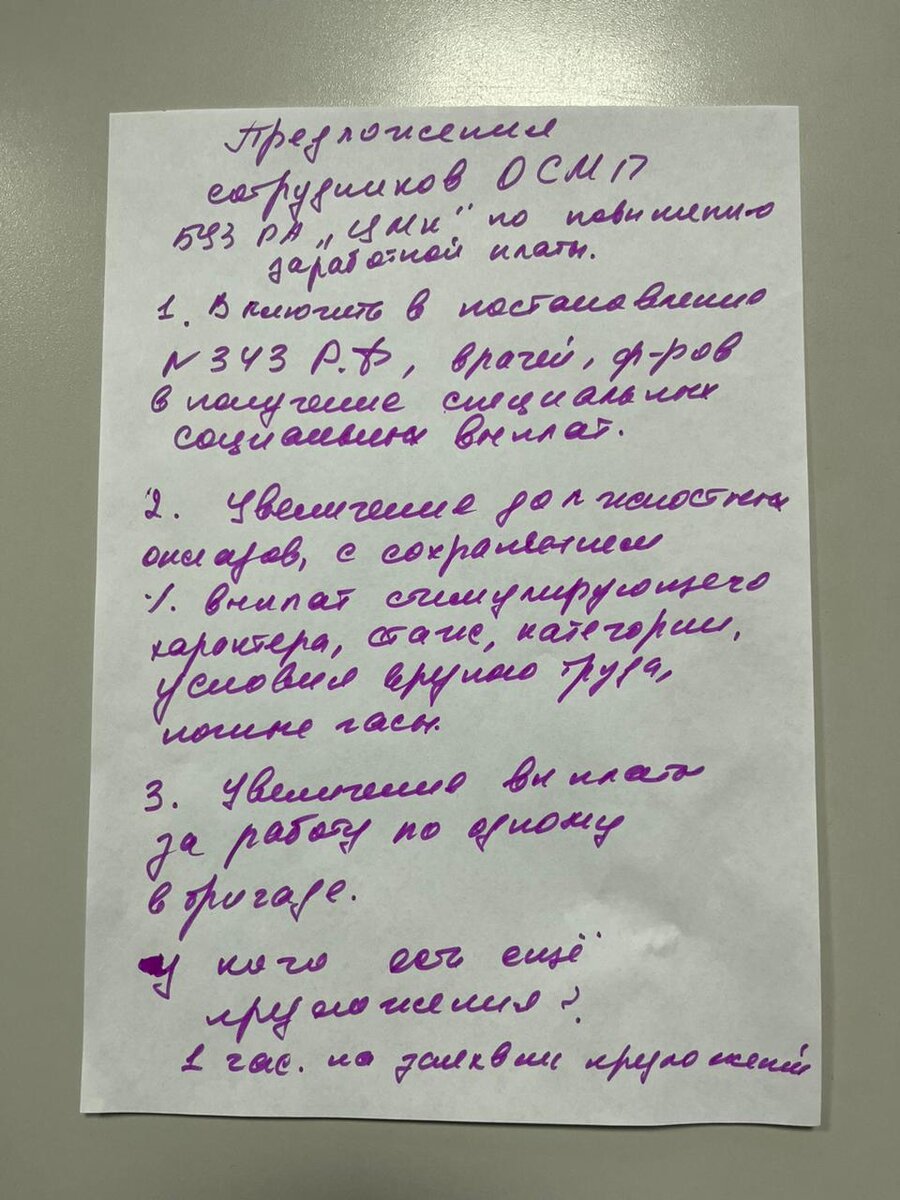 Предложения
сотрудников ОСМП
БУЗ РА „ЦМК" по повышению
заработной платы.
1. Включить в постановление
N 343 Р.Ф, врачей, ф-ров
в получение специальных
социальных выплат.
2. Увеличение должностных
окладов, с сохранением
% выплат стимулирующего
характера, стаж, категории,
условия вредного труда,
ночные часы.
3. Увеличение выплаты
за работу по одному
в бригаде.
У кого есть ещё
предложения?
1 час. на предложений